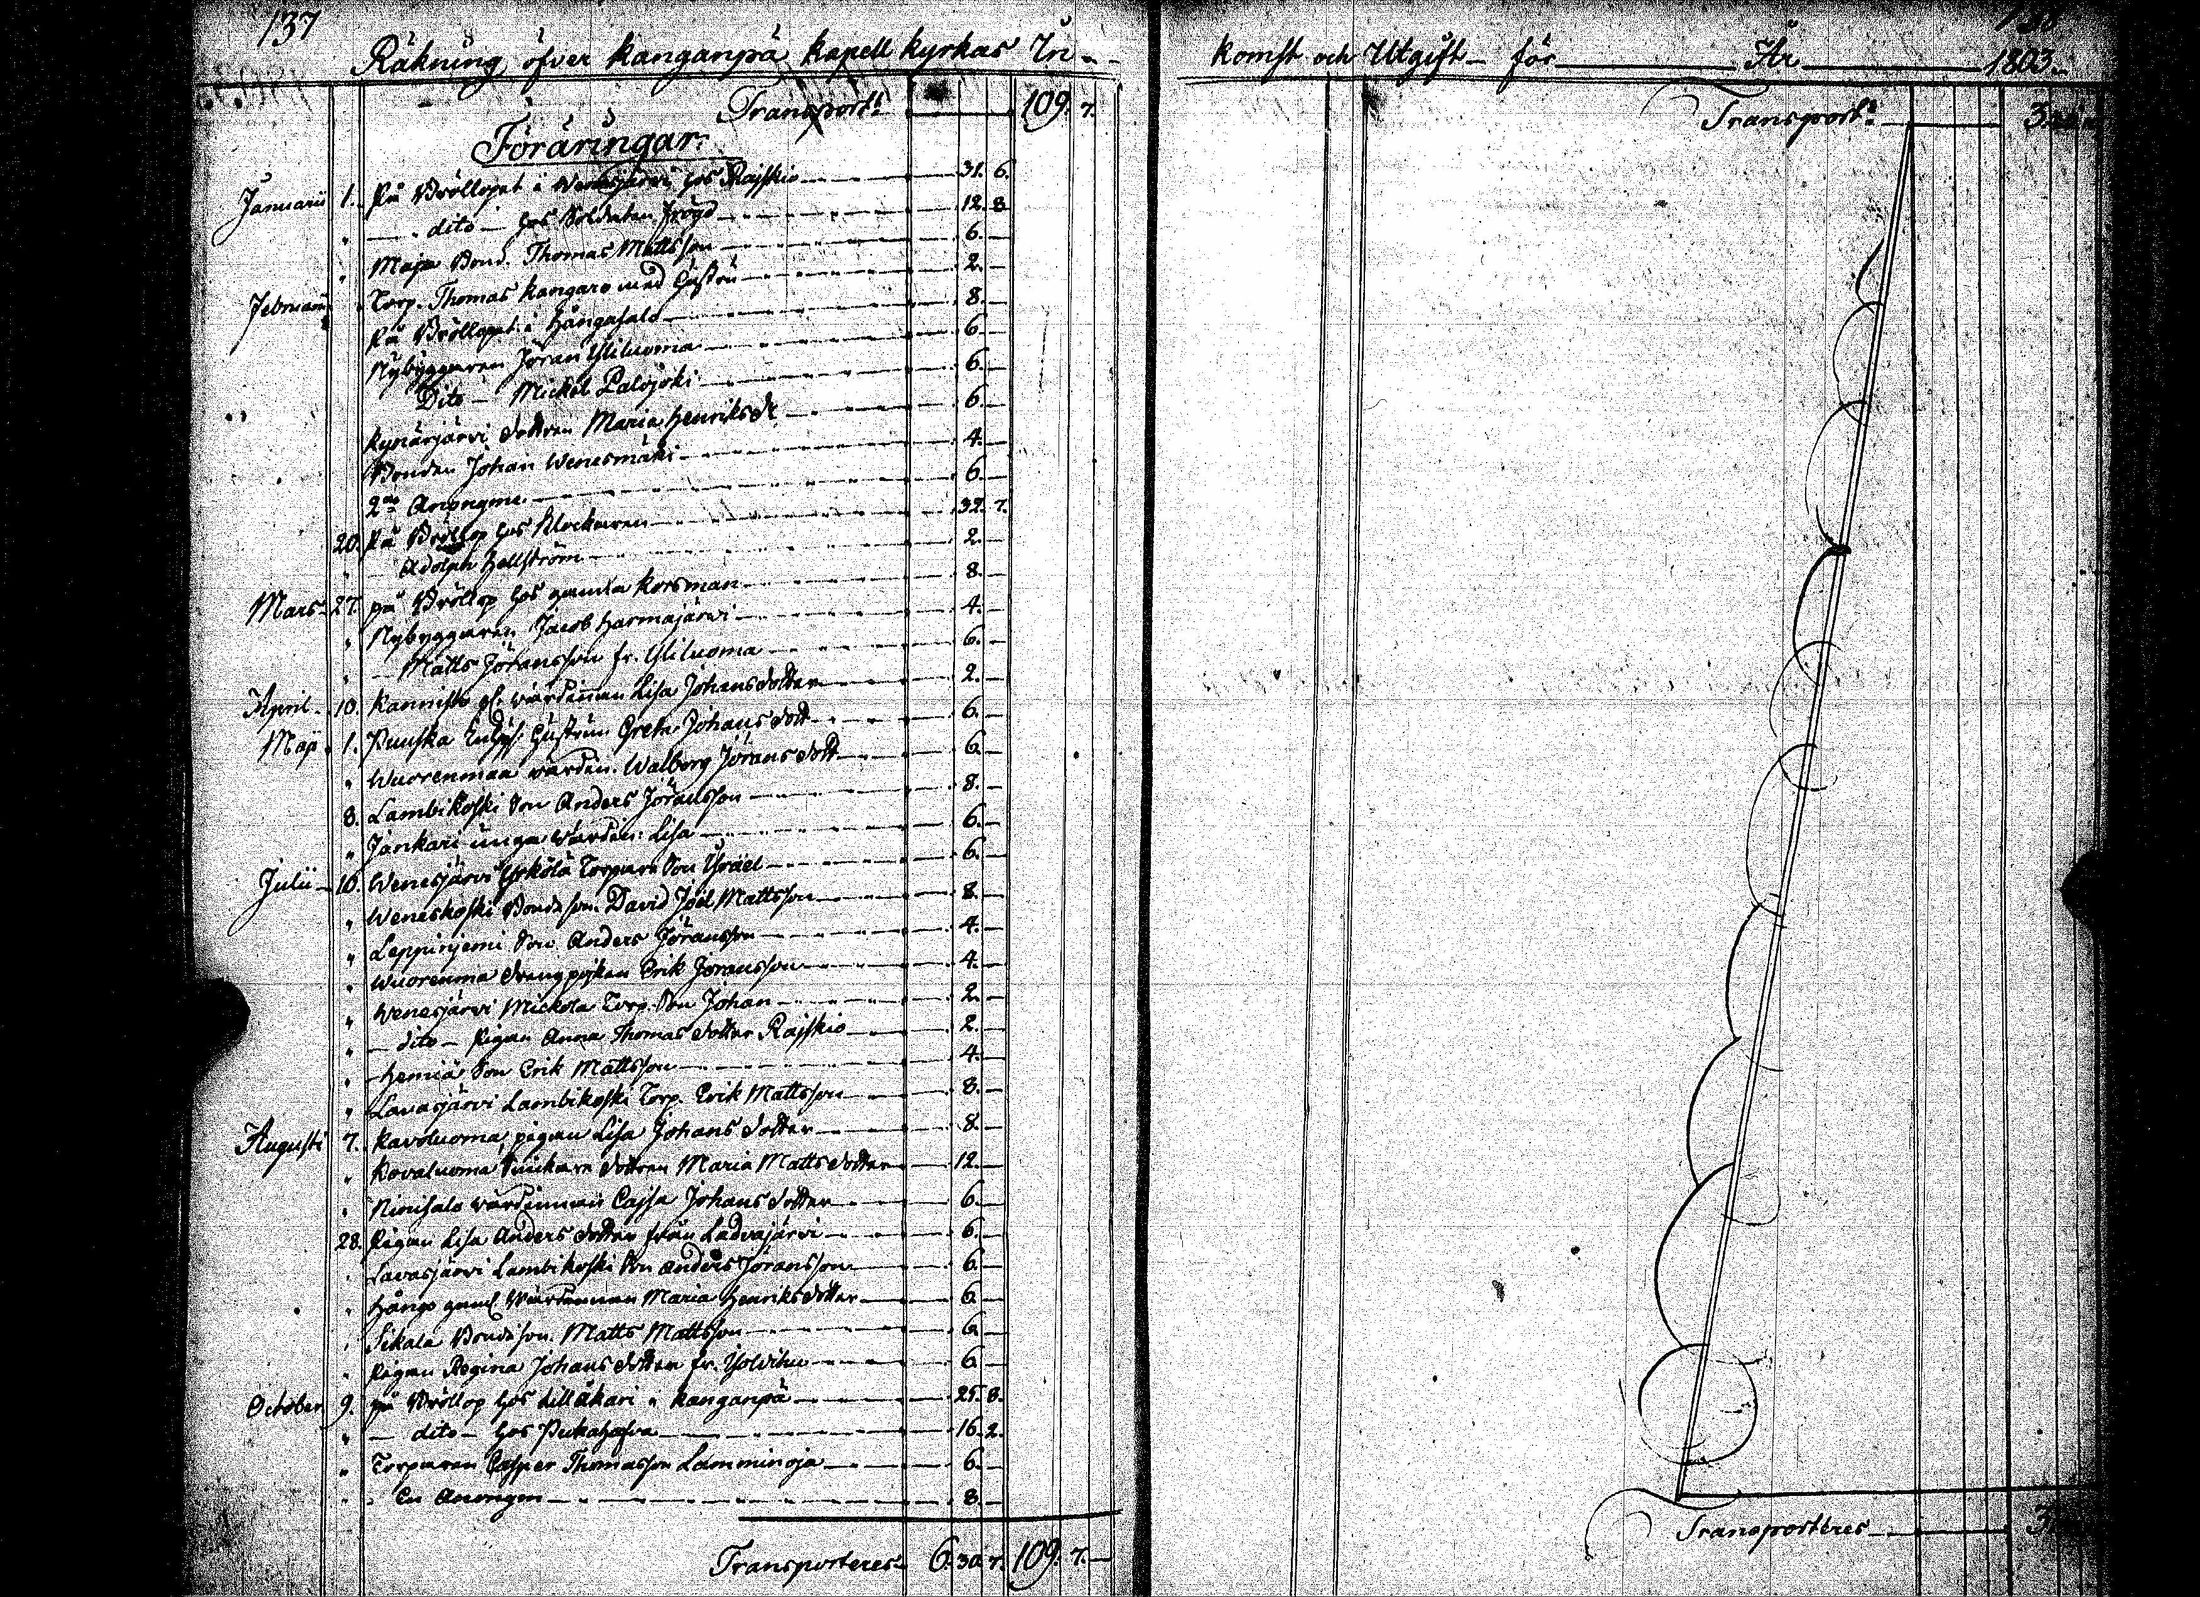 137
Räkning öfver Kanganpä Kapell kyrkas In-
Transport 109. 7.
Föräringar.
Januarii 1. På Bröllopet i Wenesjärvi hos Rajskio 31. 6.
" dito hos Soldaten Frögd 12. 8.
" Maja Bond. Thomas Mattsson 6.
Februarii " Torp. Thomas Kangare med hustru 2.
På Bröllopet i Hångasalo 8.
Nybyggaren Jöran Yliluoma 6.
Dito Mickel Palojoki 6.
Kynärjärvi dottren Maria Henriksdr 6.
Bonden Johan Wenesmäki 4.
2ne Anonyme 6.
20. På Bröllop hos Klockaren 32. 7.
" Adolph Hellström 2.
Mars 27. på Bröllop hos gamla Korsman 8.
" Nybyggaren Jacob Harmajärvi 4.
" Matts Jöransson fr. Yliluoma 6.
April 10. Kannisto gl. värdinnan Lisa Johansdotter 2.
Maji 1. Puuska hustrun Greta Johansdott 6.
" Wuorenmaa värdin. Walborg Jöransdott 6.
8. Lambikoski Son Anders Jöransson 8.
" Jankari unga Wärdin. Lisa 6.
Julii 10. Wenesjärvi Yrkölä Torpare Son Israel 6.
" Weneskoski Bondeson. David Joel Mattsson 8.
" Leppinjemi Son Anders Jöransson 4.
" Wuorenma drengpojken Erik Jöransson 4.
" Wenesjärvi Mickola Torp. Son Johan 2.
" dito Pigan Anna Thomasdotter Rajskio 2.
" Hemiä Son Erik Mattsson 4.
" Lavasjärvi Lambikoski Torp. Erik Mattsson 8.
Augusti 7. Kavoluoma pigan Lisa Johansdotter 8.
" Kovaluoma dottren Maria Mattsdotter 12.
" Niinisalo värdinnan Cajsa Johansdotter 6.
28. Pigan Lisa Andersdotter från Ladvajärvi 6.
" Lavasjärvi Lambikoski Son Anders Jöransson 6.
" Hångo gaml Wärdinnan Maria Henriksdotter 6.
" Sikala Bondeson Matts Mattsson 6.
" Pigan Regina Johansdotter fr. 6.
October 9. på Bröllop hos Killäkari i Kanganpä 25. 8.
" dito hos 16. 2.
" Torparen Casper Thomasson Lamminoja 6.
" En Anonym 8.
Transporteres 6. 30. 7. 109. 7.
komst och Utgift för År 1803.
Transport 3
Transporteres 3